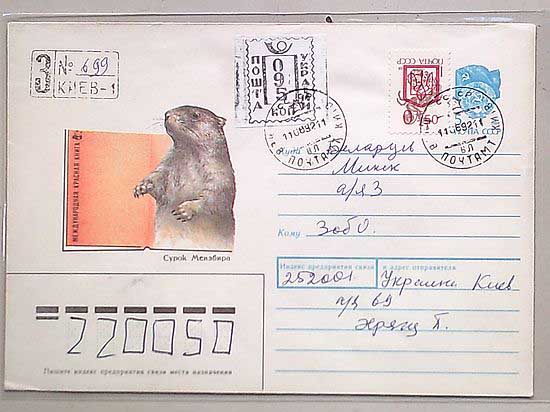 З № 699
КИЕВ-1
ПОШТА
УКРА
095
КОП
ПОЧТА СССР
0,50
ПОЧТА СССР
11069211
ПОЧТАМТ
11069211
ПОЧТАМТ
МЕЖДУНАРОДНАЯ КРАСНАЯ КНИГА
Сурок Мензбира
Куда Беларусь
Минск
а/я 3
Кому Зобо.
Индекс предприятия связи и адрес отправителя
252001 Украина Киев
п/я 69
220050
Пишите индекс предприятия связи места назначения